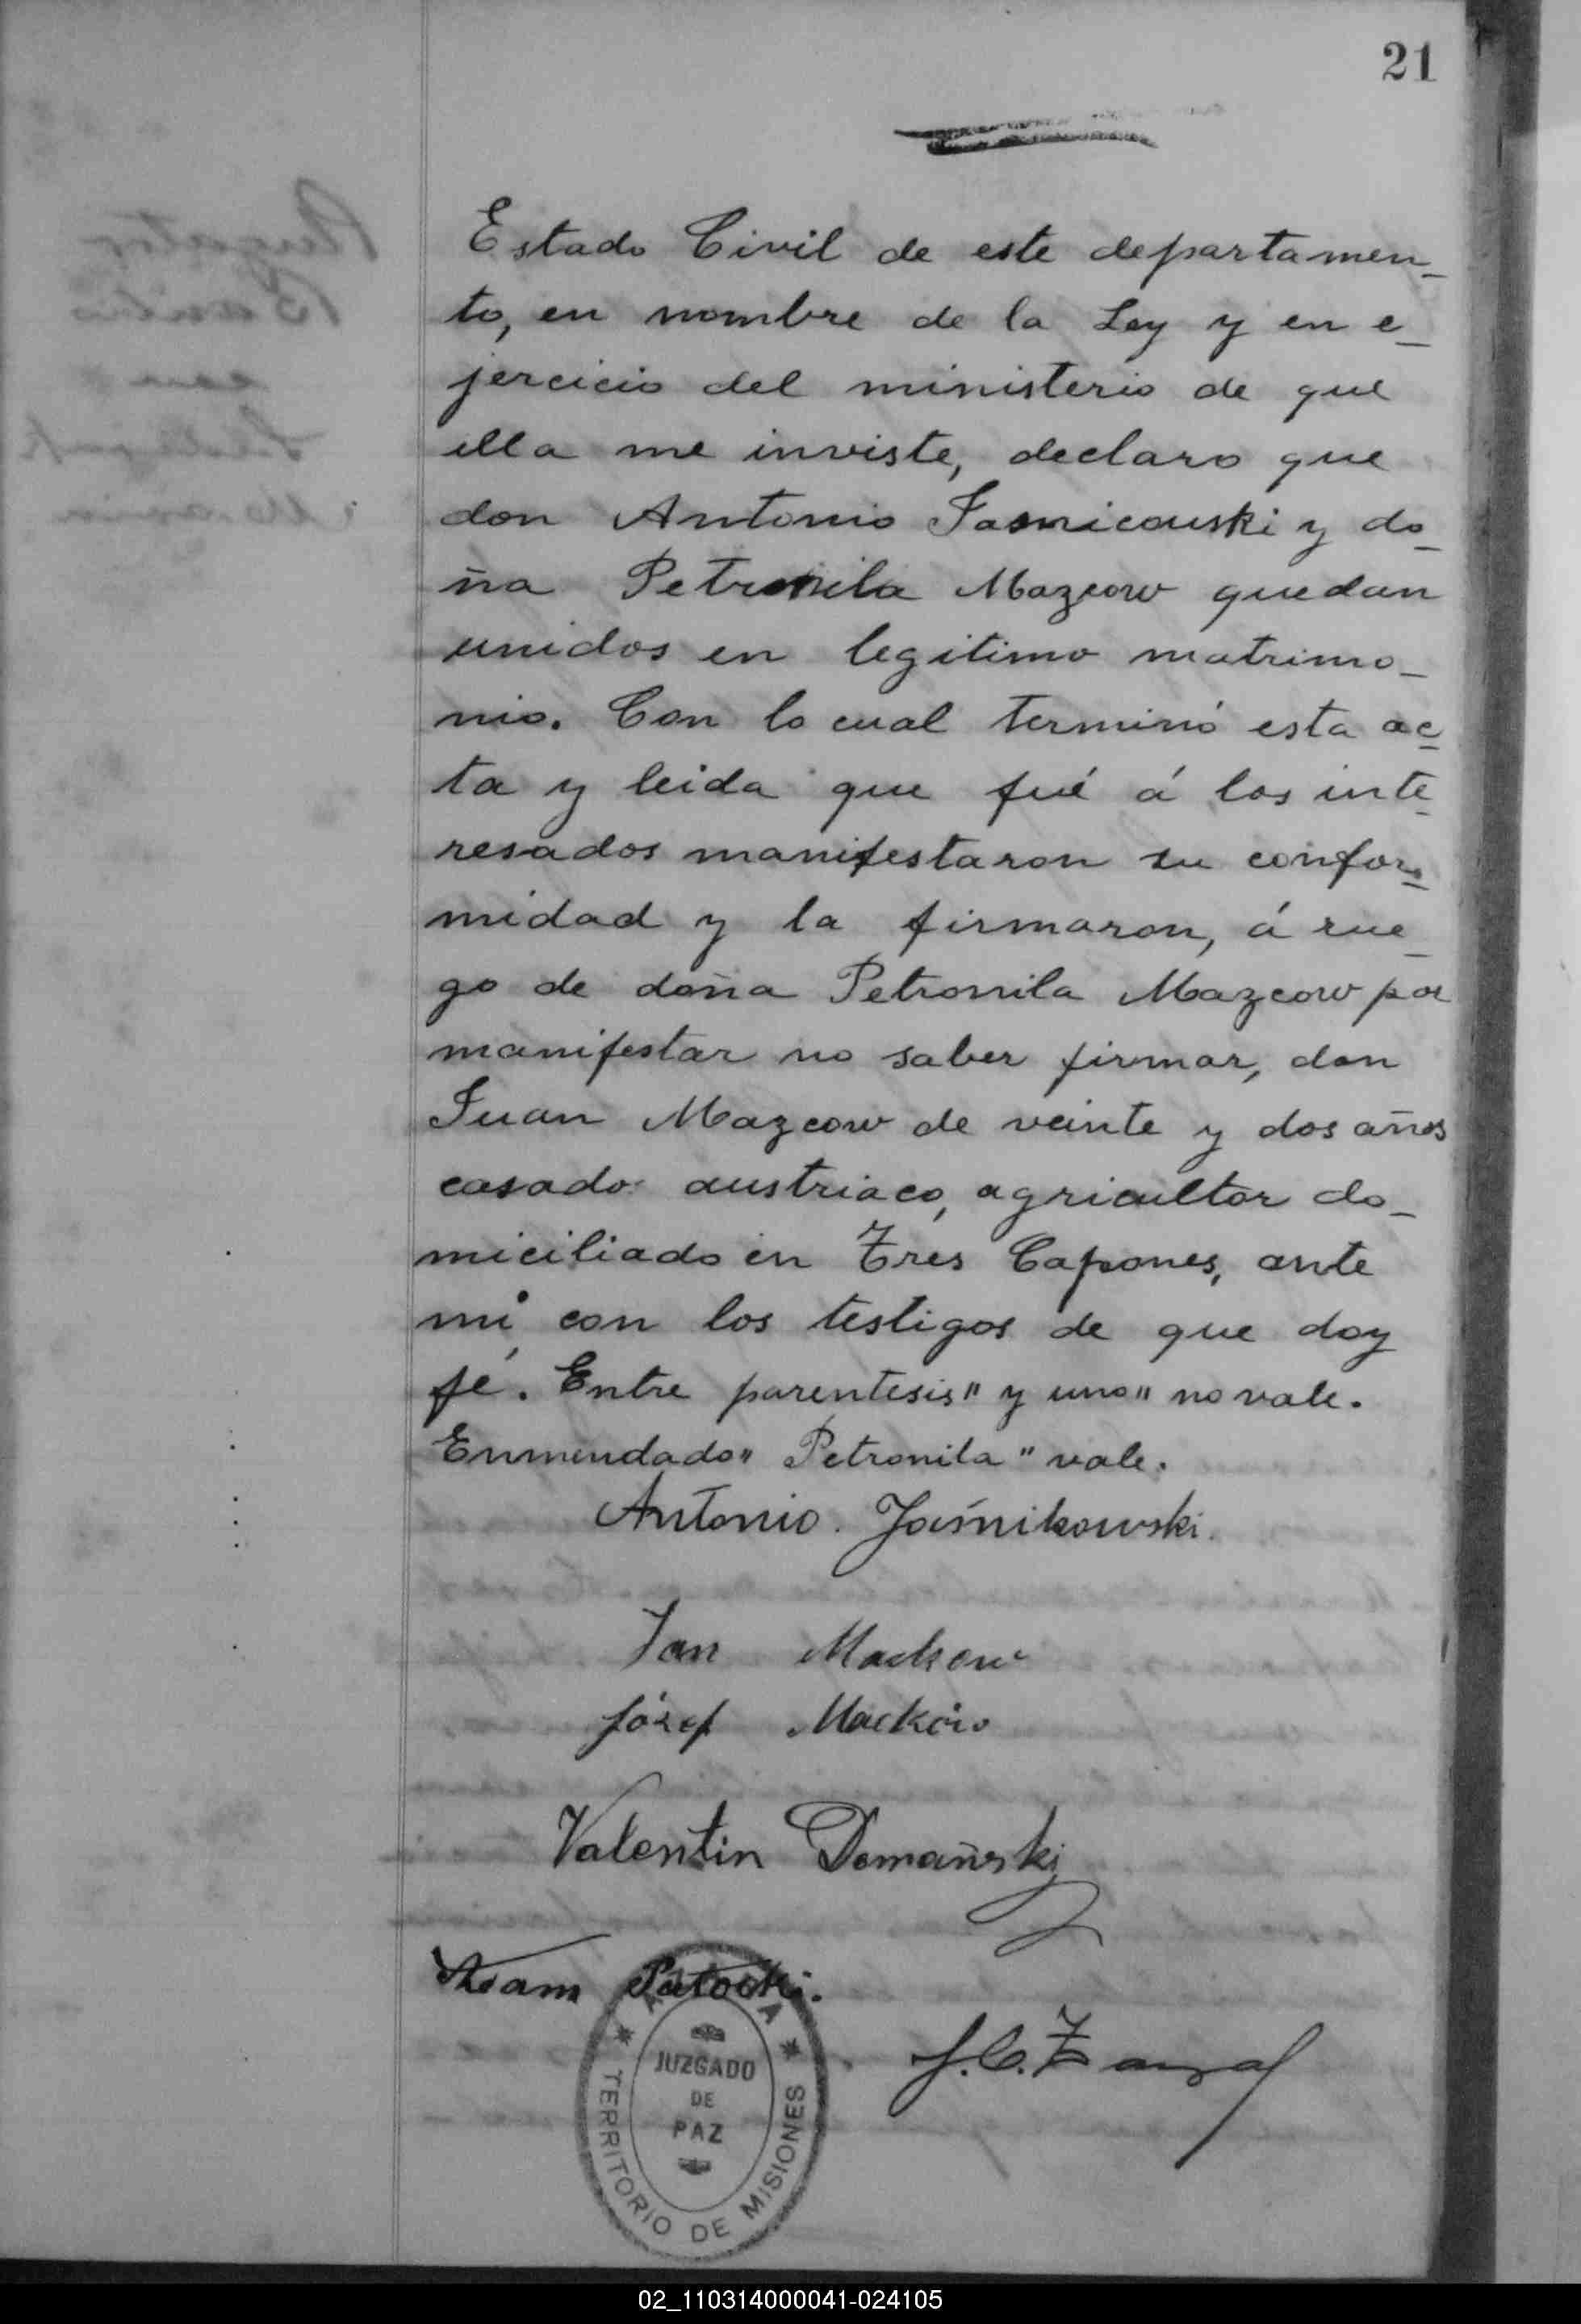 21
Estado Civil de este departamen_
to, en nombre de la Ley y en e_
jercicio del ministerio de que
ella me inviste, declaro que
don Antonio Jasnicouski y do_
ña Petronila Mazcow quedan
unidos en legitimo matrimo_
nio. Con lo cual terminó esta ac_
ta y leida que fué á los inte_
resados manifestaron su confor_
midad y la firmaron, á rue_
go de doña Petronila Mazcow por
manifestar no saber firmar, don
Juan Mazcow de veinte y dos años
casado austriaco, agricultor do_
miciliado en Tres Capones, ante
mi con los testigos de que doy
fé. Entre parentesis "y uno" no vale.
Enmendado "Petronila" vale.
Antonio. Jaśnikowski.
Jan Mackow
Józef Macków
Valentin Domañski
Adam Patocki.
JUZGADO
DE
PAZ
TERRITORIO DE MISIONES
02_110314000041-024105